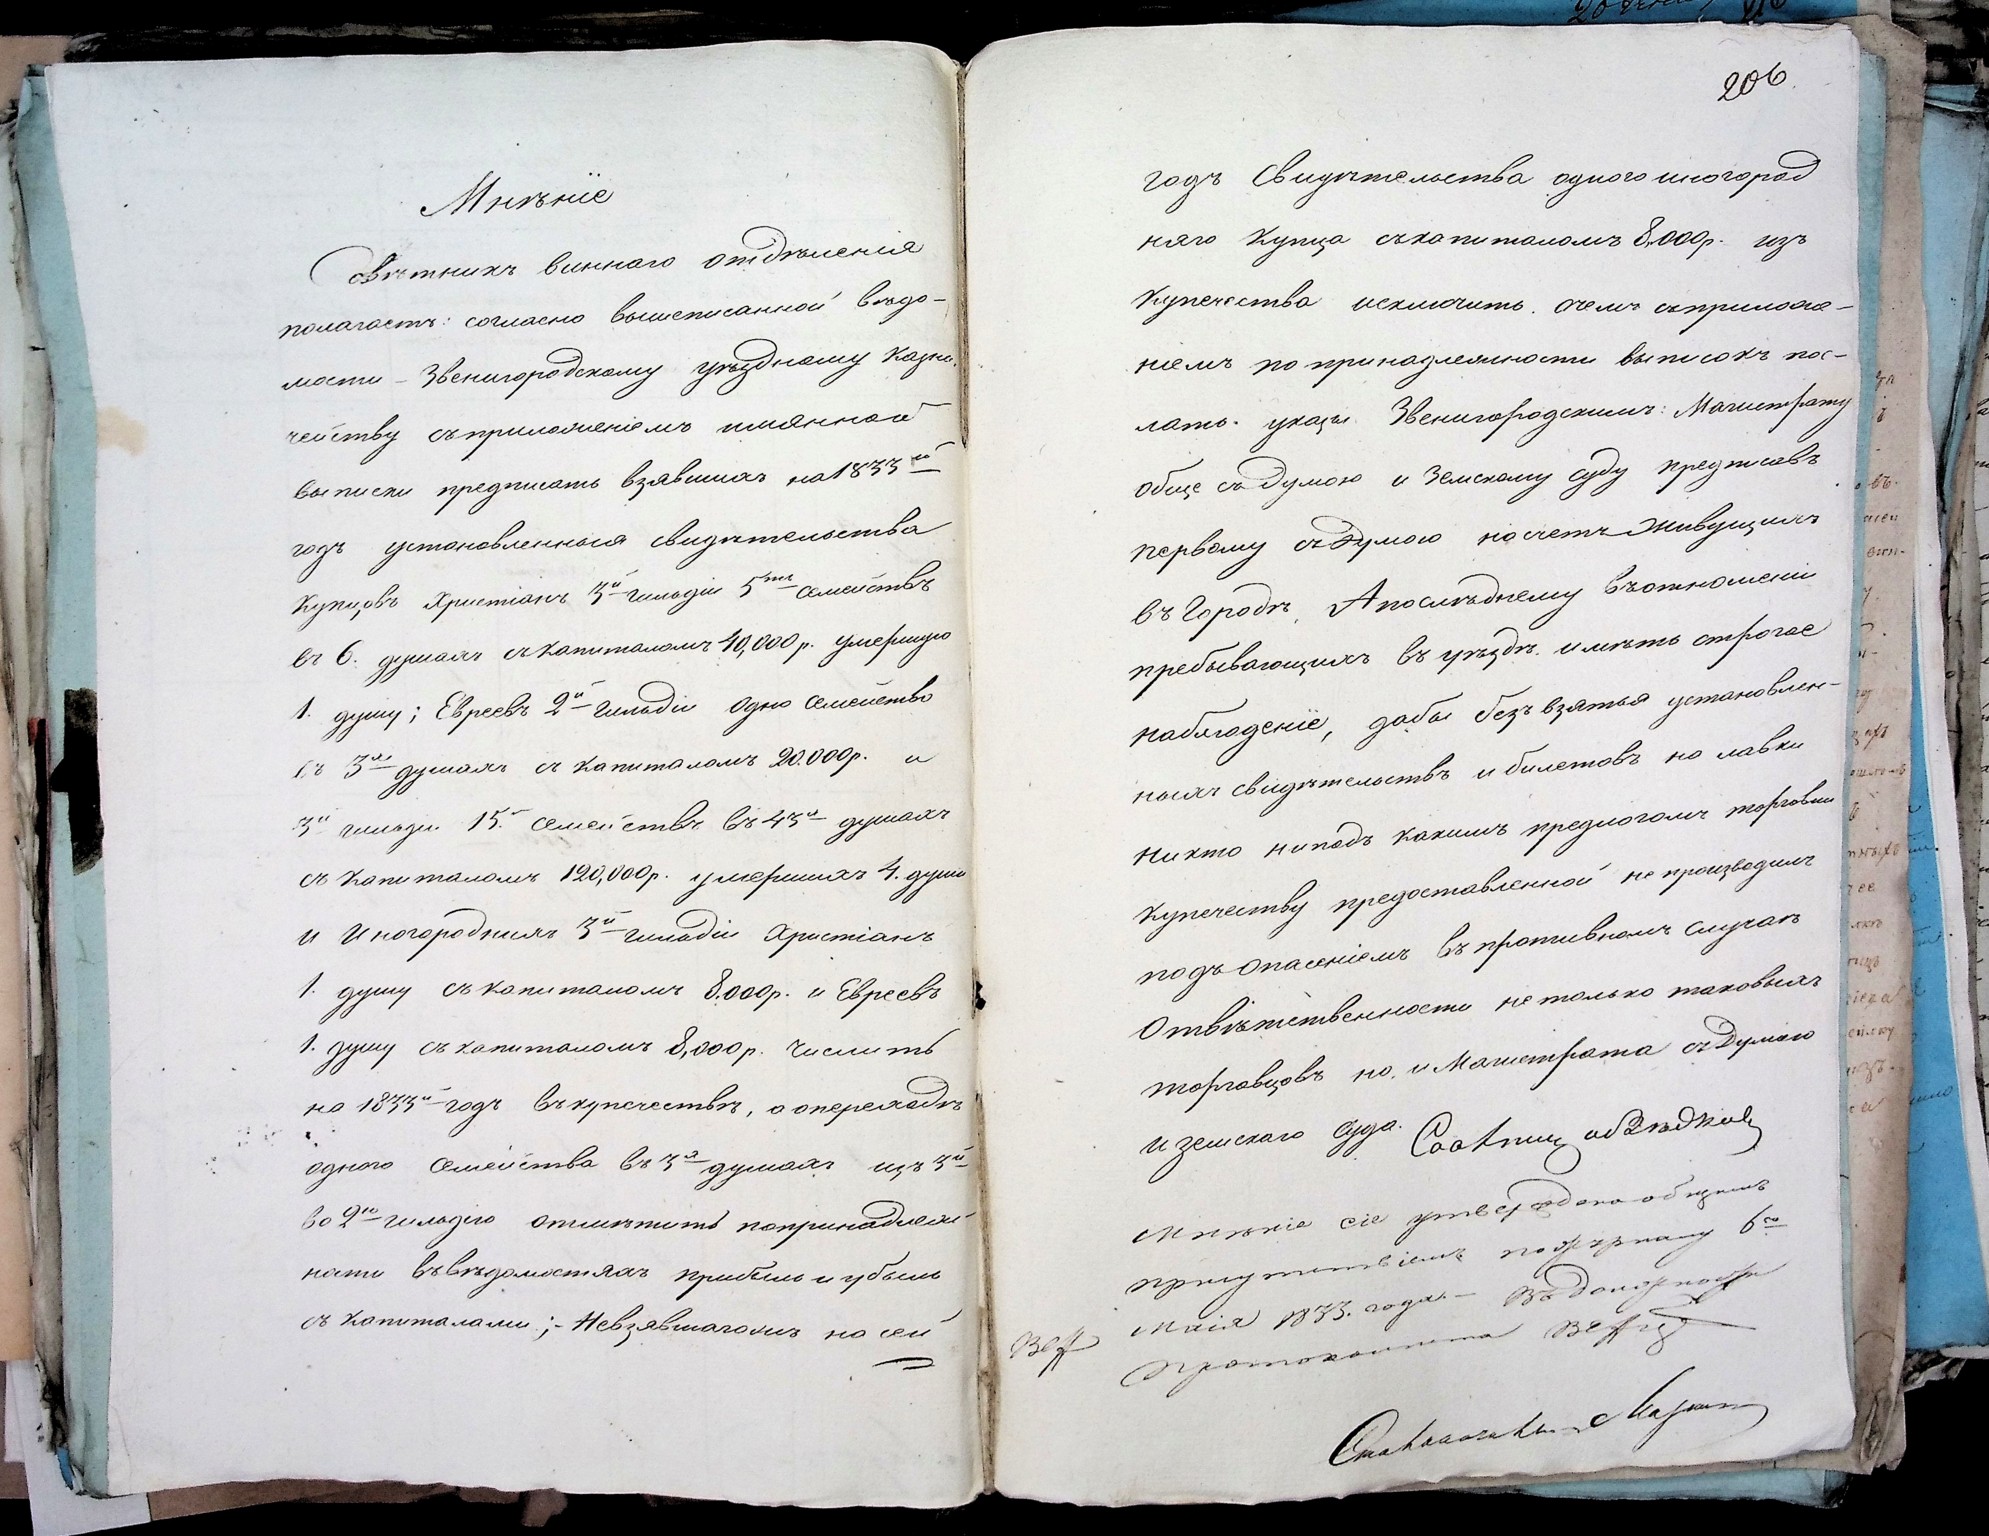 Мнѣніе
Совѣтникъ виннаго отдѣленія
полагаетъ: согласно вышеписанной вѣдо-
мости – Звенигородскому уѣздному Казна
чейству съ приложеніемъ имянной
выписки предписать взявшихъ на 1833й
годъ установленныя свидѣтельства
Купцовъ Христіанъ 3й гильдіи 5ть семействъ
въ 6. душахъ съ капиталомъ 40,000 р. умершую
1. душу; Евреевъ 2й гильдіи одно семейство
въ 3хъ душахъ съ капиталомъ 20.000р. и
3й гильдіи 15. семействъ въ 43х душахъ
съ капиталомъ 120,000р. умершихъ 4. души
и Иногороднихъ 3й гильдіи Христіанъ
1. душу съ капиталомъ 8.000р. и Евреевъ
1. душу съ капиталомъ 8,000р. числить
на 1833й годъ въ купечествѣ, а о переходѣ
одного семейства въ 3х душахъ изъ 3й
во 2ю гильдію отмѣтить по принадлеж
ности въ вѣдомостяхъ прибыль и убыль
съ капиталами;- Невзявшагожъ на сей
206.
годъ свидѣтельства одного иногород
няго Купца съ капиталомъ 8,000р. изъ
Купечества исключить. о чемъ съ приложе-
ніемъ по принадлежности выписокъ пос-
лать указы Звенигородскимъ: Магистрату
обще съ Думою и Земскому суду предписавъ
первому съ Думою на счетъ живущихъ
въ Городѣ, А послѣднему въ отношеніи
пребывающихъ въ уѣздѣ. имѣть строгое
наблюденіе, дабы безъ взятья установлен-
ныхъ свидѣтельствъ и билетовъ на лавки
никто ни подъ какимъ предлогомъ торговли
купечеству предоставленной не производилъ
подъ опасеніемъ въ противномъ случаѣ
отвѣтственности не только таковыхъ
торговцовъ но и Магистрата съ Думою
и земскаго суда.
Мнѣніе сіе утверждено общимъ
присутствіемъ по журналу 6го
Маія 1833. года. – Въ должности
протоколиста
Столоначальн.